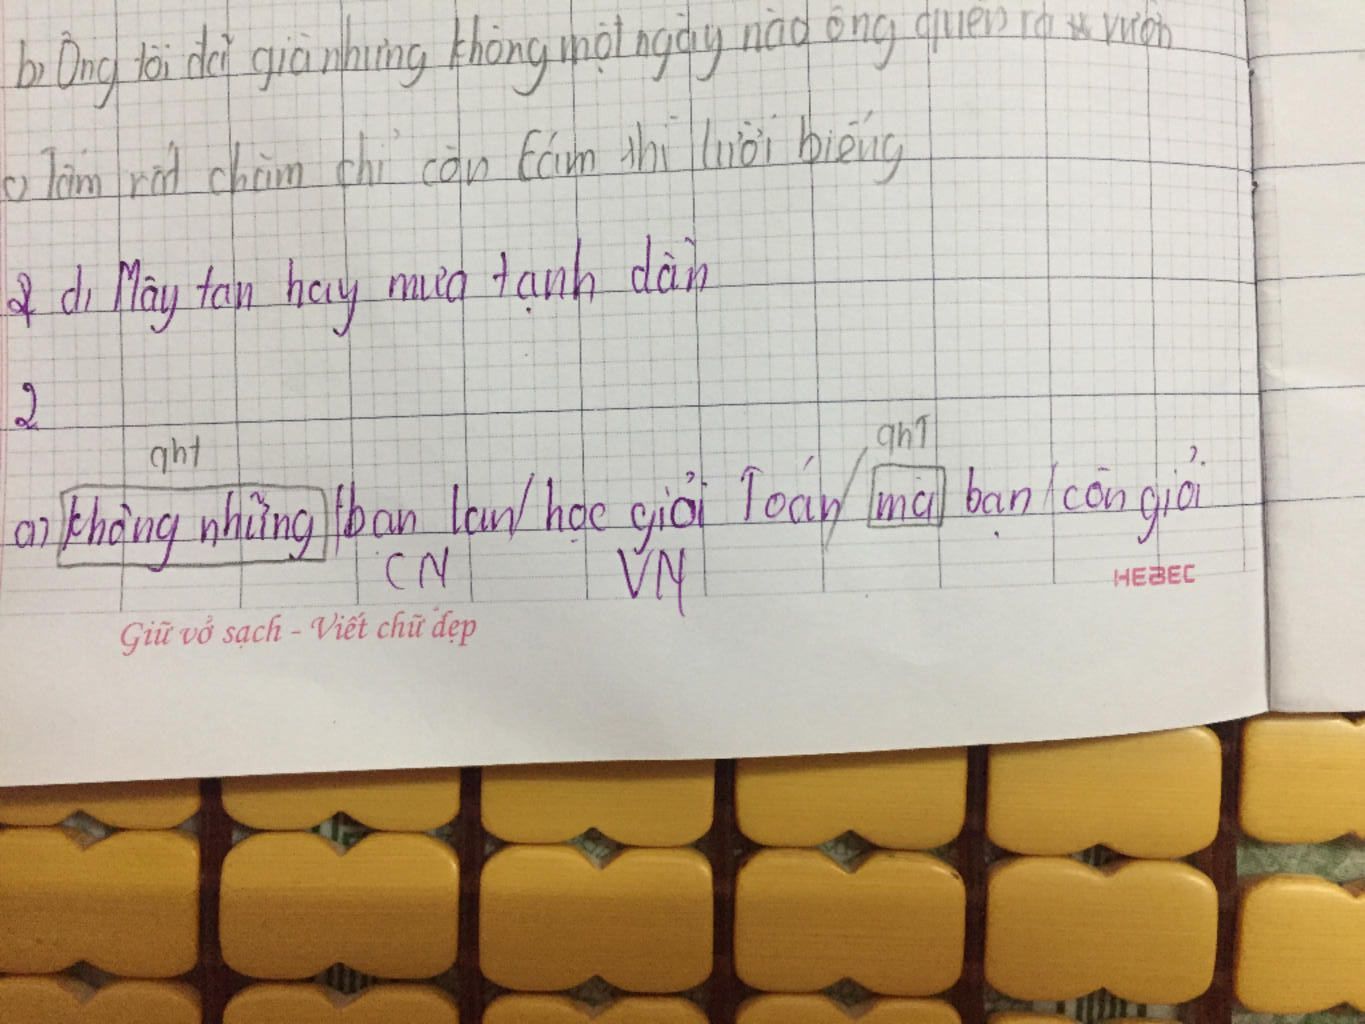 b) Ông tôi đã già nhưng không một ngày nào ông quên ra vườn
c) Tấm rất chăm chỉ còn Cám thì lười biếng
2 d) Mây tan hay mưa tạnh dần
2
qht qht
a) không những bạn lan/ học giỏi Toán/ mà bạn / còn giỏi
CN VN
HEBEC
Giữ vở sạch - Viết chữ đẹp